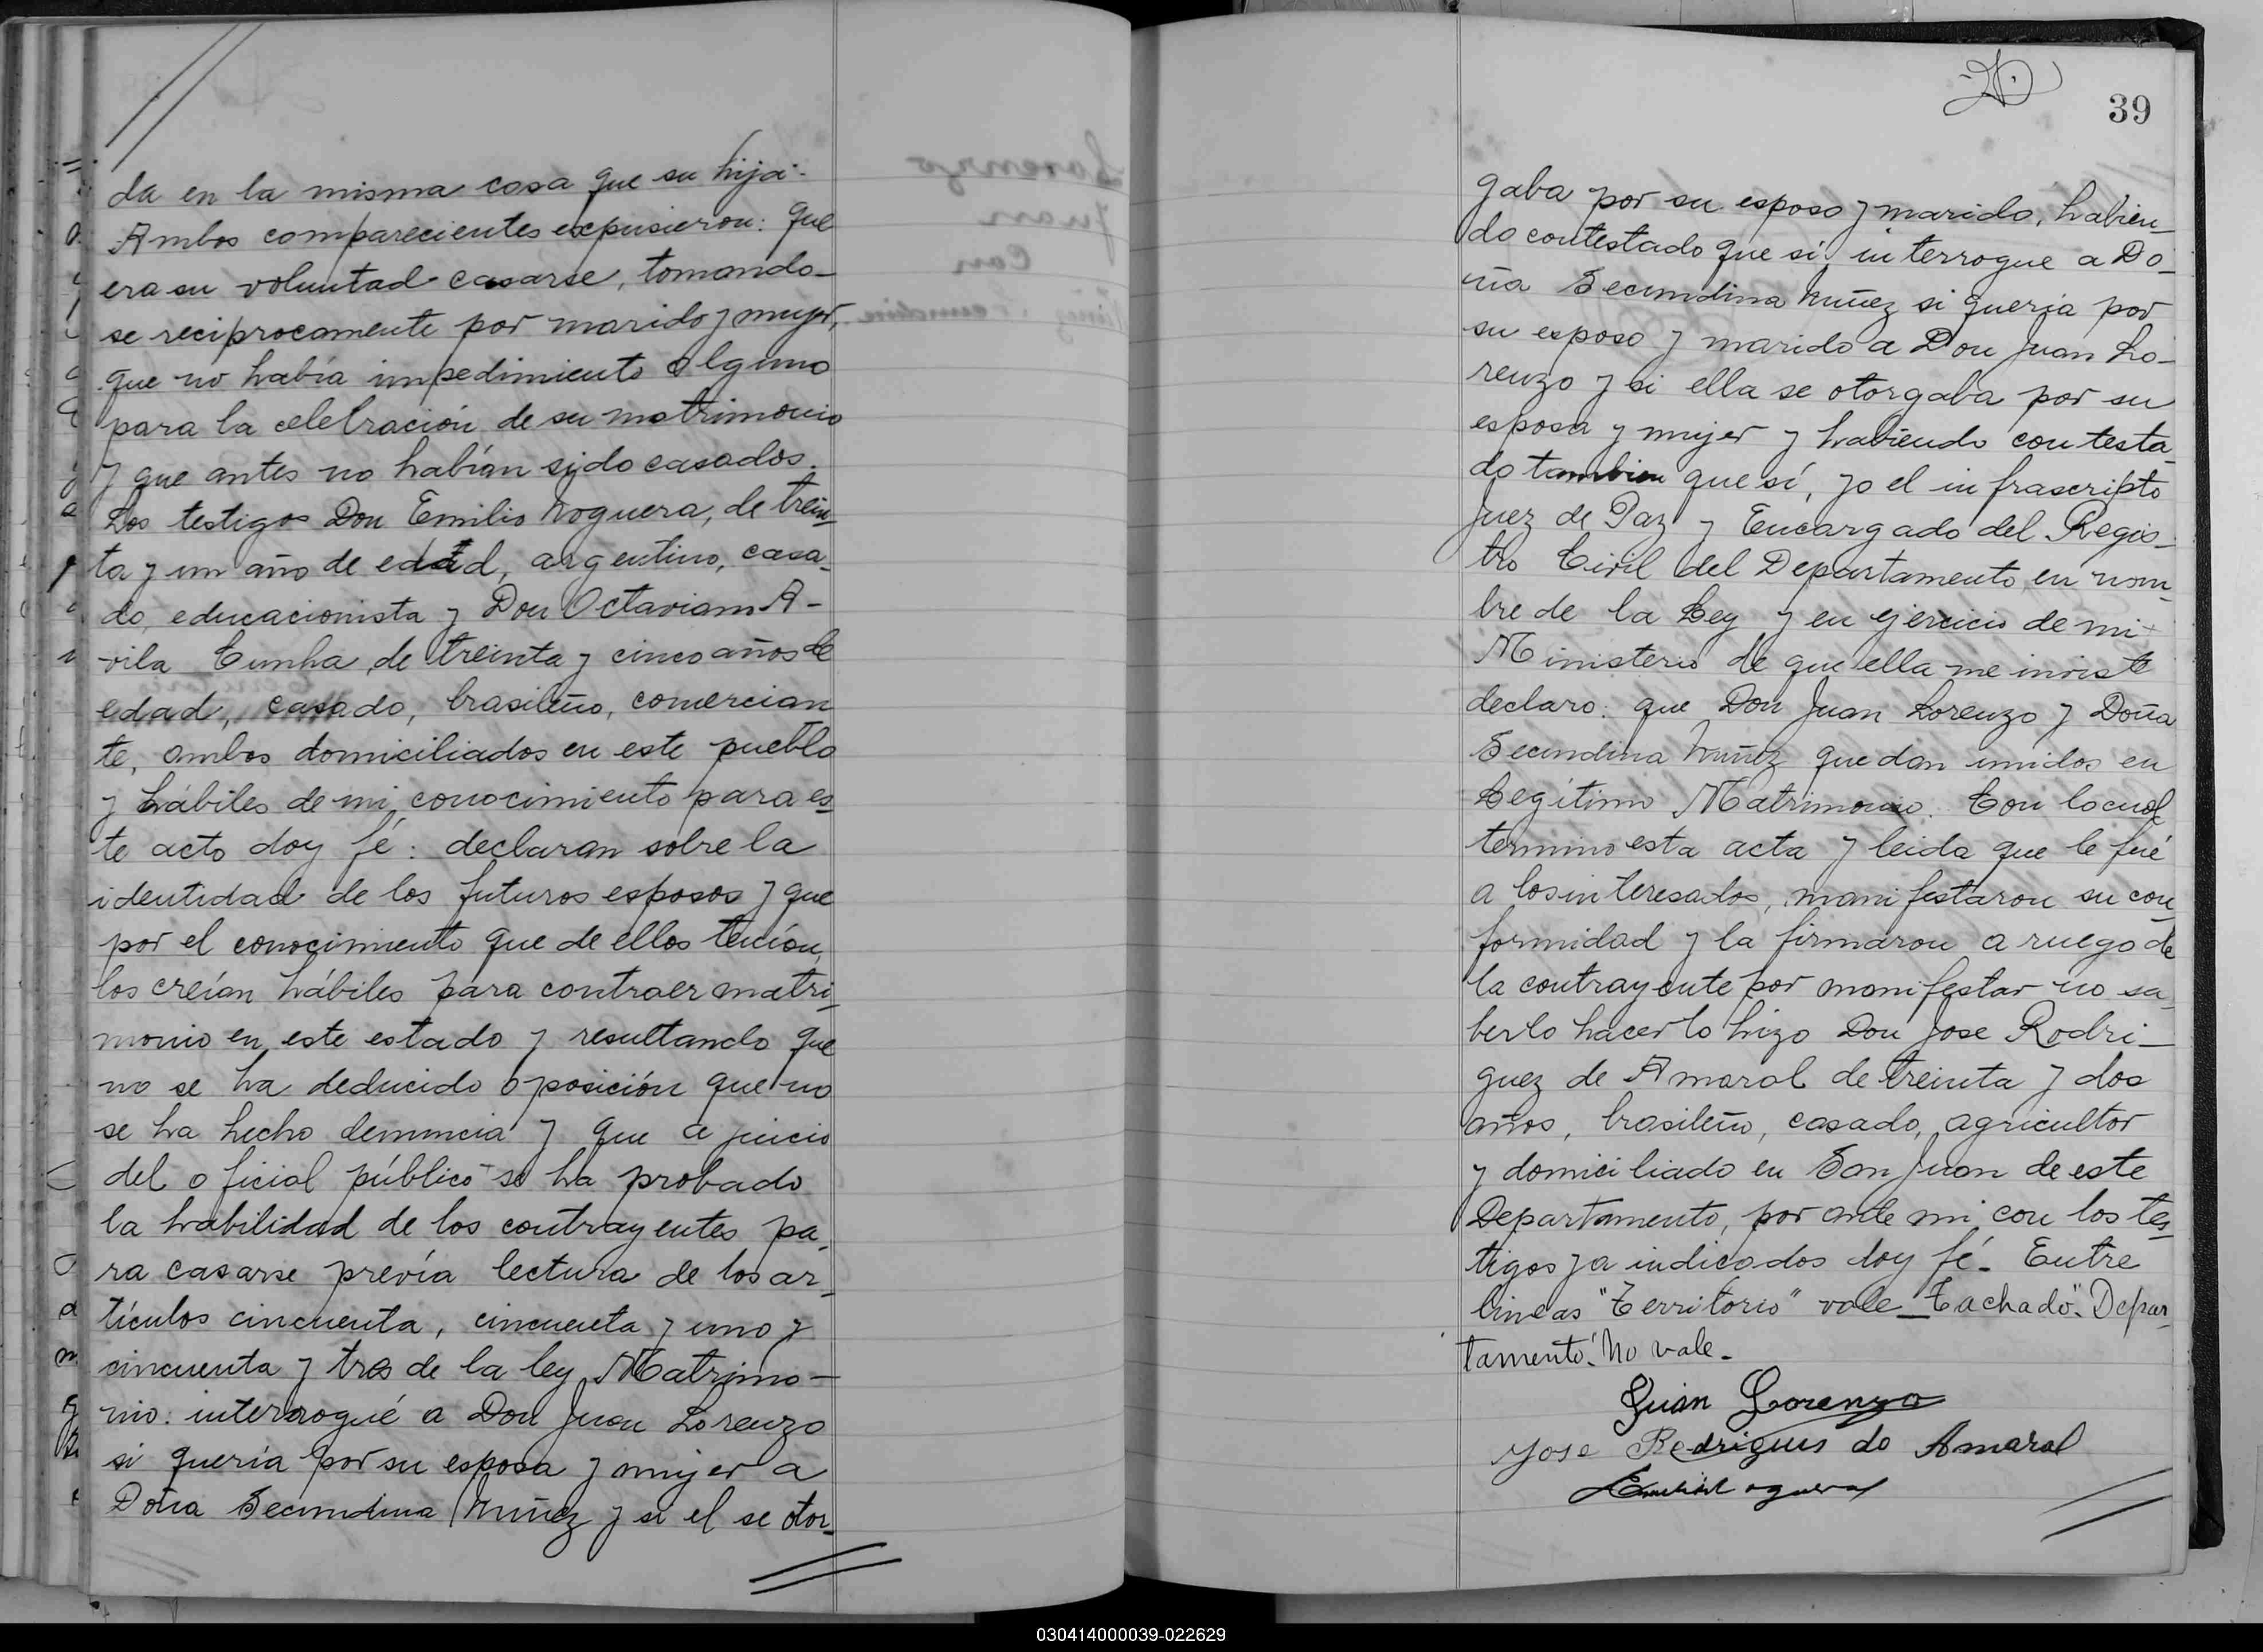 da en la misma casa que su hija.
Ambos comparecientes expusieron: que
era su voluntad casarse, tomando-
se reciprocamente por marido y mujer,
que no había impedimiento alguno
para la celebración de su matrimonio
y que antes no habían sido casados.
Los testigos Don Emilio Noguera, de trein-
ta y un año de edad, argentino, casa-
do, educacionista y Don Octaviano A-
vila Cunha, de treinta y cinco años de
edad, casado, brasileño, comercian
te, ambos domiciliados en este pueblo
y hábiles de mi conocimiento para es
te acto doy fé: declaran sobre la
identidad de los futuros esposos y que
por el conocimiento que de ellos tenían,
los creían hábiles para contraer matri
monio en este estado y resultando que
no se ha deducido oposición que no
se ha hecho denuncia y que a juicio
del oficial público se ha probado
la habilidad de los contrayentes pa-
ra casarse previa lectura de los ar-
tículos cincuenta, cincuenta y uno y
cincuenta y tres de la ley Matrimo-
nio: interrogué a Don Juan Lorenzo
si quería por su esposa y mujer a
Doña Secundina Nuñez y si el se otor-
39
gaba por su esposo y marido, habien-
do contestado que sí, interrogue a Do-
ña Secundina Nuñez si queria por
su esposo y marido a Don Juan Lo-
renzo y si ella se otorgaba por su
esposa y mujer y habiendo contesta-
do tambien que sí, yo el infrascripto
Juez de Paz y Encargado del Regis-
tro Civil del Departamento, en nom-
bre de la Ley y en ejercicio de mi
Ministerio de que ella me inviste
declaro: que Don Juan Lorenzo y Doña
Secundina Nuñez quedan unidos en
Legítimo Matrimonio. Con lo cual
termino esta acta y leida que le fué
a los interesados, manifestaron su con-
formidad y la firmaron a ruego de
la contrayente por manifestar no sa
berlo hacer lo hizo Don Jose Rodri-
guez de Amaral de treinta y dos
años, brasileño, casado, agricultor
y domiciliado en San Juan de este
Departamento, por ante mi, con los tes
tigos ya indicados doy fé. Entre
lineas "Territorio" vale_Tachado". Depar-
tamento". No vale.
Juan Lorenzo
Jose Rodrigues do Amaral
Emilio Noguera
030414000039-022629